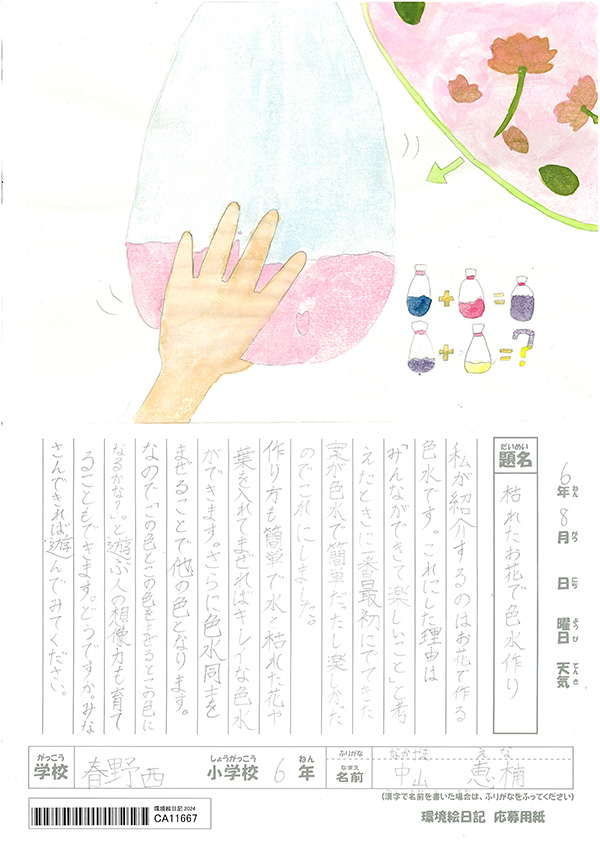 + =
+ = ?
6年 ねん
8月 がつ
日 にち
曜日 ようび
天気 てんき
題名 だいめい
枯れたお花で色水作り
私が紹介するのはお花で作る
色水です。これにした理由は
「みんなができて楽しいこと」と考
えたときに一番最初にでてきた
案が色水で簡単だったし楽しかった
のでこれにしました。
作り方も簡単で水と枯れた花や
葉を入れてまぜればキレイな色水
ができます。さらに色水同士を
まぜることで他の色となります。
なので「この色とこの色をまぜるとこの色に
なるかな?」と遊ぶ人の想像力も育て
ることもできます。どうですか。みな
さんできれば遊んでみてください。
学校 がっこう 春野西 小学校 しょうがっこう 6 年 ねん
ふりがな なかやま えな
名前 なまえ 中山 恵楠
(漢字で名前を書いた場合は、ふりがなをふってください)
環境絵日記 2024
CA11667
環境絵日記 応募用紙